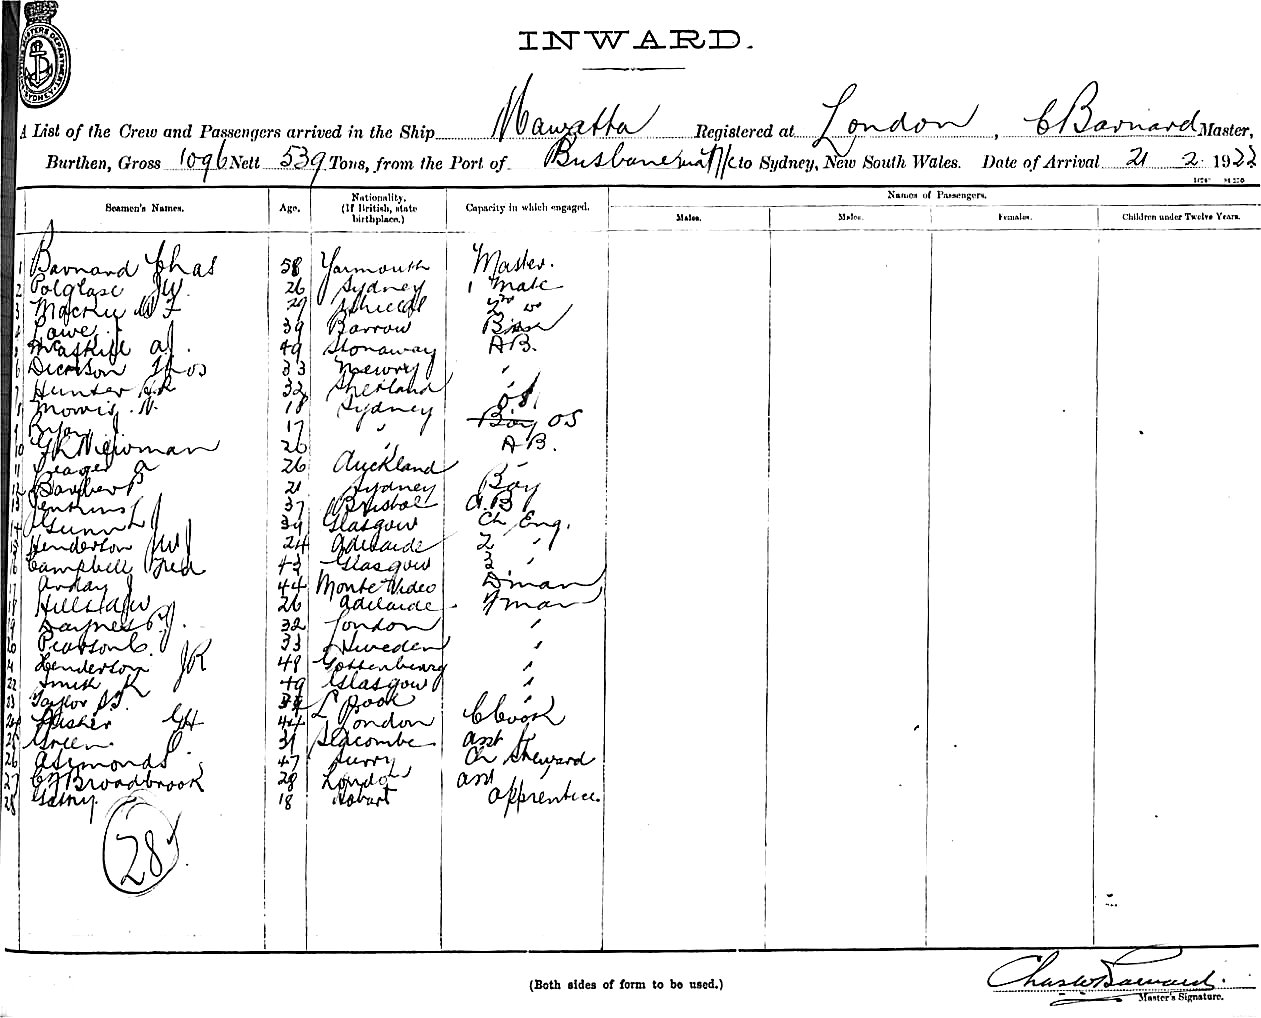 INWARD.
A List of the Crew and Passengers arrived in the Ship Mawatta Registered at London, C Barnard Master,
Burthen, Gross 1096 Nett 539 Tons, from the Port of to Sydney, New South Wales. Date of Arrival 21 2 1922
Seamen's Names. Age. Nationality. (If British, state birthplace.) Capacity in which engaged. Names of Passengers.
Males. Males. Females. Children under Twelve Years.
1 Barnard Chas 58 Yarmouth Master.
2 Polglase JW 26 Sydney 1 Mate
3 Macky W F 29
4 Lowe J 39 Barrow
5 McAskill A J. 49 Stonaway A B.
6 Dickson Thos 33 Newry "
7 Hunter H.R 32 Shetland "
8 Morris. N. 18 Sydney O S
9 Ryan J 17 " Boy OS
10 Newman 26 " A B.
11 Yeager A 26 Auckland "
12 Barber P 21 Sydney Boy
13 Jenkins J 37 Bristol A.B
14 Gunn J 39 Glasgow Ch Eng.
15 Henderson JW 24 Adelaide 2 "
16 Campbell Fred 43 Glasgow 3 "
17 J 44 Monte Video Dman
18 W 26 Adelaide. Fman
19 Daynes J. 32 London "
20 Pearson C. 33 Sweden "
21 Henderson JR 48 Gottenburg "
22 Smith K 49 Glasgow "
23 Taylor L'Pool
24 Fisher GH 44 London C Cook
25 Green. P. 31 Seacombe Asst "
26 A Simonds 47 Surry Ch Steward
27 CJ Broadbrook 28 London Asst "
28 18 Hobart Apprentice.
28
(Both sides of form to be used.)
Chas W Barnard.
Master's Signature.